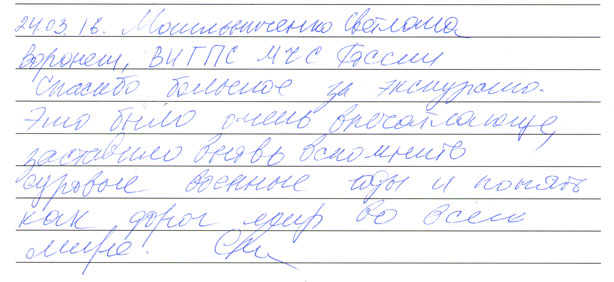 24.03.16. Мошльниченко Светлана
Воронеж, ВИГПС МЧС России
Спасибо большое за экскурсию.
Это было очень впечатляюще,
заставило вновь вспомнить
суровые военные годы и понять
как дорог мир во всем
мире.